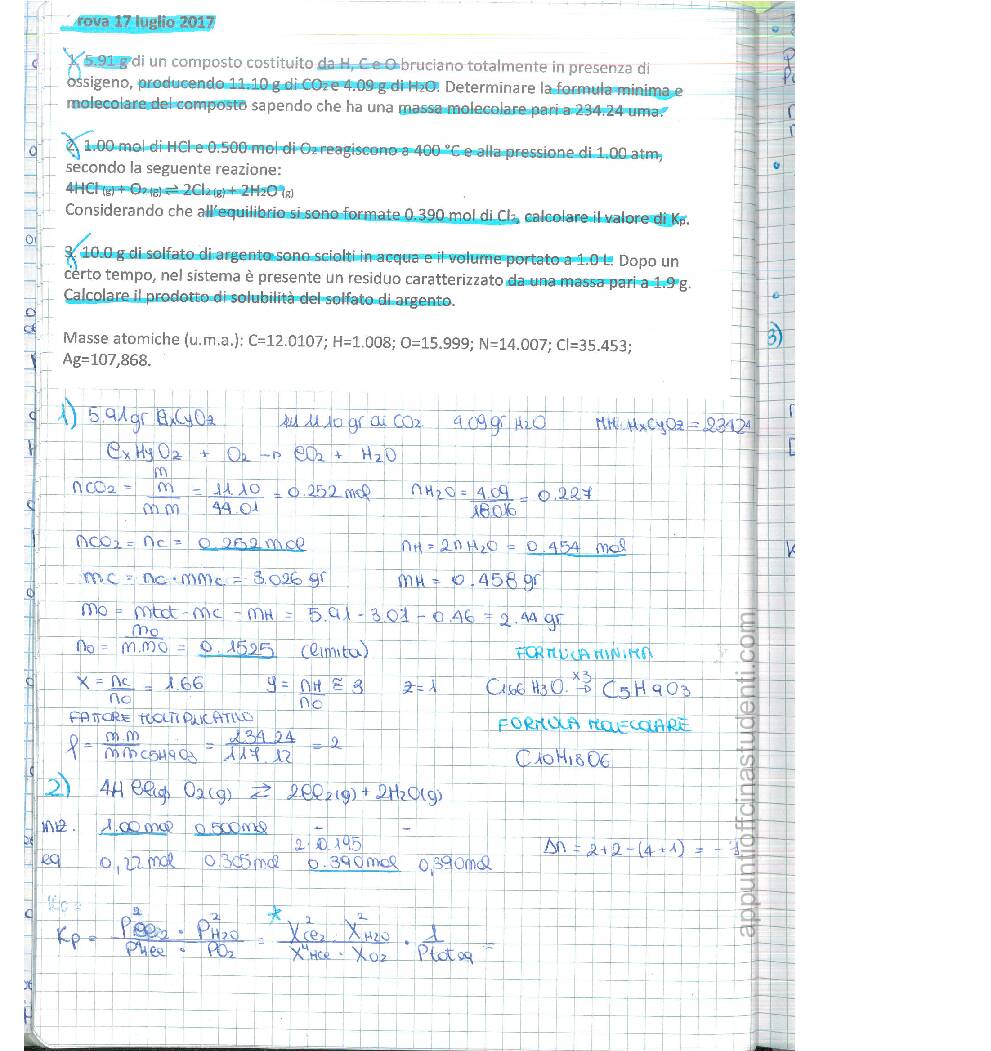 rova 17 luglio 2017
1. 5.91 g di un composto costituito da H, C e O bruciano totalmente in presenza di
ossigeno, producendo 11.10 g di CO₂ e 4.09 g di H₂O. Determinare la formula minima e
molecolare del composto sapendo che ha una massa molecolare pari a 234.24 uma.
2. 1.00 mol di HCl e 0.500 mol di O₂ reagiscono a 400 °C e alla pressione di 1.00 atm,
secondo la seguente reazione:
4HCl (g) + O₂ (g) ⇌ 2Cl₂ (g) + 2H₂O (g)
Considerando che all'equilibrio si sono formate 0.390 mol di Cl₂, calcolare il valore di Kp.
3. 10.0 g di solfato di argento sono sciolti in acqua e il volume portato a 1.0 L. Dopo un
certo tempo, nel sistema è presente un residuo caratterizzato da una massa pari a 1.9 g.
Calcolare il prodotto di solubilità del solfato di argento.
Masse atomiche (u.m.a.): C=12.0107; H=1.008; O=15.999; N=14.007; Cl=35.453;
Ag=107,868.
3)
1) 5.91 gr 11.10 gr di CO2 4.09 gr H2O MM HxCyOz = 234.24
CxHyOz + O2 → CO2 + H2O
nCO2 = m/mm = 11.10/44.01 = 0.252 mol nH2O = 4.09/18.016 = 0.227
nCO2 = nC = 0.252 mol nH = 2nH2O = 0.454 mol
mC = nC · mmC = 3.026 gr mH = 0.458 gr
mO = mtot - mC - mH = 5.91 - 3.01 - 0.46 = 2.44 gr
nO = mO/m.mO = 0.1525 (limita) FORMULA MINIMA
x = nC/nO = 1.66 y = nH/nO ≅ 3 z = 1 C1.66 H3O. x3 → C5H9O3
FATTORE MOLTIPLICATIVO FORMULA MOLECOLARE
f = m.m/mmC5H9O3 = 234.24/117.12 = 2 C10H18O6
2) 4HCl(g) O2(g) ⇄ 2Cl2(g) + 2H2O(g)
iniz. 1.00mol 0.500mol - -
2·0.195 Δn = 2+2-(4+1) = -1
eq 0,22mol 0.305mol 0.390mol 0,390mol
Kp = P²Cl2 · P²H2O / P⁴HCl · PO2 = * X²Cl2 · X²H2O / X⁴HCl · XO2 · 1/Ptot eq =
appuntiofficinastudenti.com